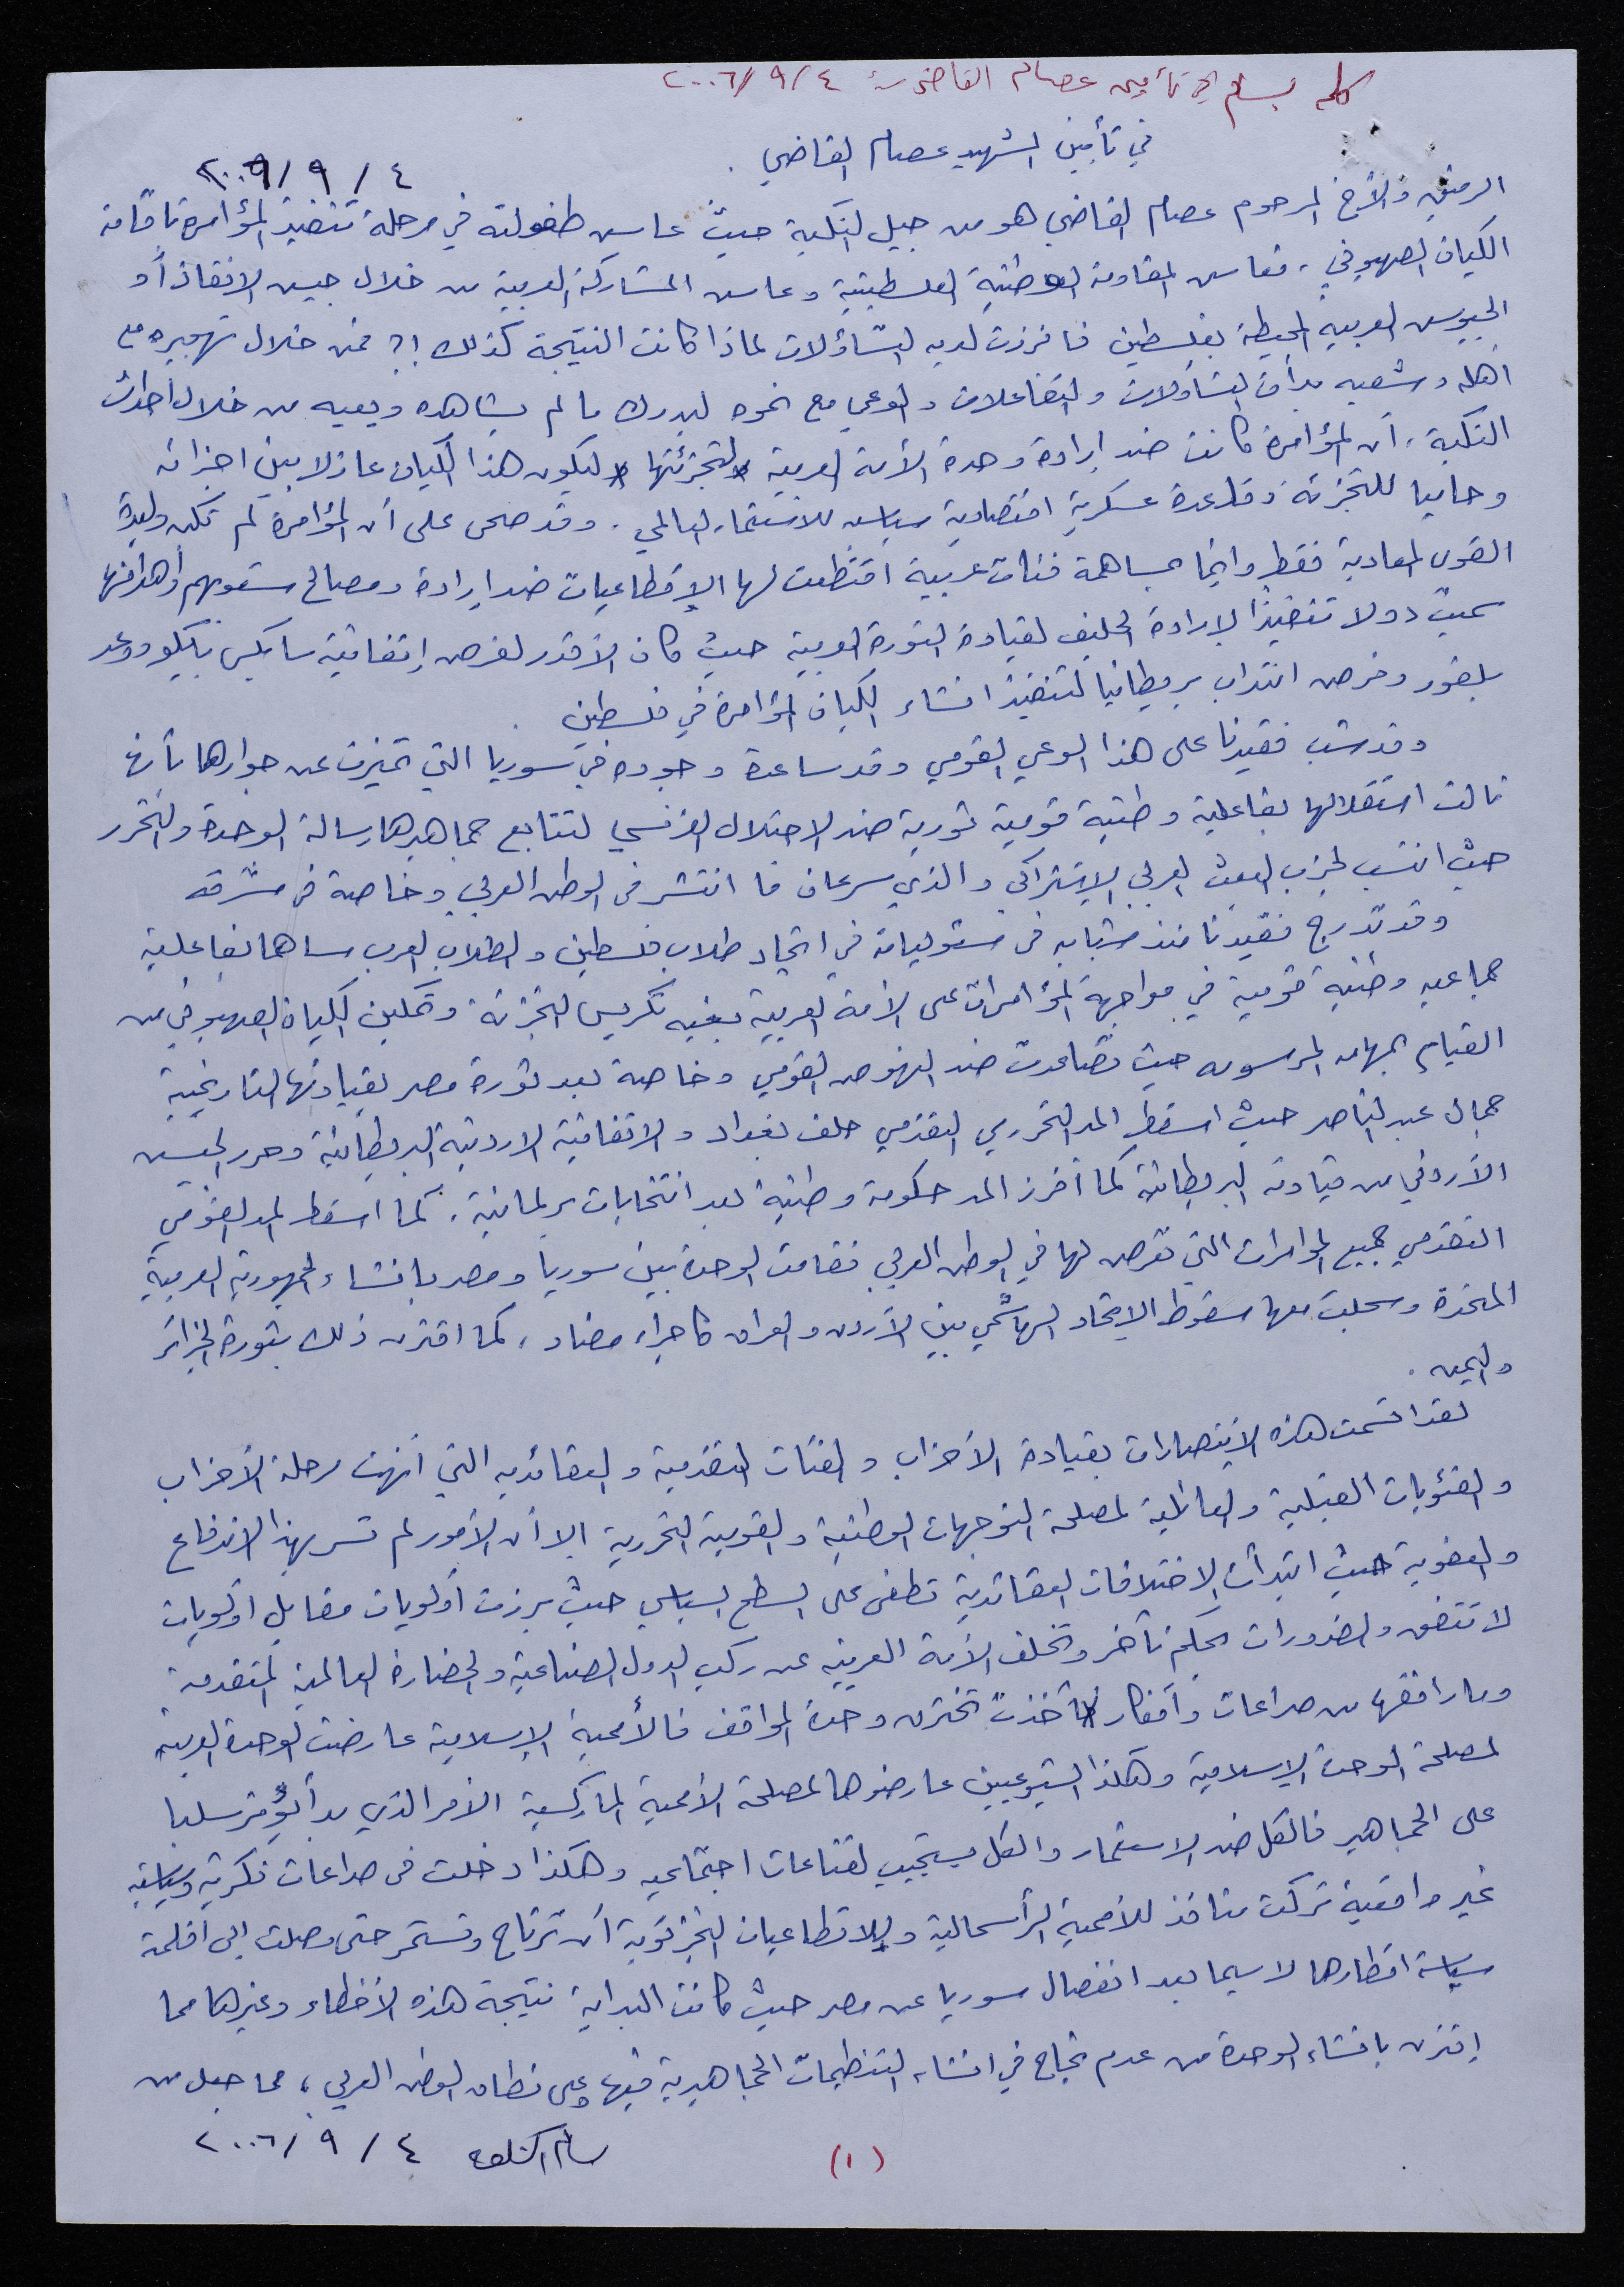 كلمة بسام في تأبين عصام القاضي ٤/٩/٢٠٠٦
في تأبين الشهيد عصام القاضي .
٤/٩/٢٠٠٦
الرفيق والأخ المرحوم عصام القاضي هو من جيل النكبة حيث عاش طفولته في مرحلة تنفيذ المؤامرة باقامة
الكيان الصهيوني ، فعاش المقاومة الوطنية الفلسطينية وعاش المشاركة العربية من خلال جيش الانقاذ أو
الجيوش العربية المحيطة بفلسطين فافرزت لديه التساؤلات لماذا كانت النتيجة كذلك !؟ فمن خلال تهجيره مع
اهله وشعبه بدأت التساؤلات والتفاعلات والوعي مع نموه ليدرك ما لم يشاهده ويعيه من خلال أحداث
النكبة ، أن المؤامرة كانت ضد إرادة وحدة الأمة العربية لتجزئتها ليكون هذا الكيان عازلا بين اجزائه
وحاميا للتجزئة وقاعدة عسكرية اقتصادية سياسية للاستعمار العالمي . وقد صحى على أن المؤامرة لم تكن وليدة
القوى المعادية فقط وانما بمساهمة فئات عربية اقتطعت لها الإقطاعيات ضد إرادة ومصالح شعوبهم وأهدافها
سميت دولا تنفيذا لارادة الحليف لقيادة الثورة العربية حيث كان الأقدر لفرض إتفاقية سايكس بايكو ووعد
بلفور وفرض انتداب بريطانيا لتنفيذ انشاء الكيان المؤامرة في فلسطين .
وقد شب فقيدنا على هذا الوعي القومي وقد ساعده وجوده في سوريا التي تميزت عن جوارها بأنها
نالت استقلالها بفاعلية وطنية قومية ثورية ضد الاحتلال الفرنسي لتتابع جماهيرها رسالة الوحدة والتحرر
حيث انتسب لحزب البعث العربي الإشتراكي والذي سرعان ما انتشر في الوطن العربي وخاصة في مشرقه
وقد تدرج فقيدنا منذ شبابه في مسئولياته في اتحاد طلاب فلسطين والطلاب العرب مساهما بفاعلية
جماعيه وطنية قومية في مواجهة المؤامرات على الأمة العربية بغيه تكريس التجزئة وتمكين الكيان الصهيوني من
القيام بمهامه المرسومه حيث تصاعدت ضد النهوض القومي وخاصة بعد ثورة مصر بقيادتها التاريخية
جمال عبد الناصر حيث اسقط المد التحرري التقدمي حلف بغداد والاتفاقية الاردنية البريطانية وحرر الجيش
الأردني من قيادته البريطانية كما أفرز المد حكومة وطنية بعد انتخابات برلمانية . كما اسقط المد القومي
التقدمي جميع المؤامرات التي تعرض لها في الوطن العربي فقامت الوحدة بين سوريا ومصر بانشاء الجمهورية العربية
المتحدة وسجلت معها سقوط الاتحاد الهاشمي بين الأردن والعراق كاجراء مضاد ، كما اقترن ذلك بثورة الجزائر
واليمن .
لقد اتسمت هذه الانتصارات بقيادة الأحزاب والفئات التقدمية والعقائديه التي أنهت مرحلة الأحزاب
والفئويات القبلية والعائلية لمصلحة التوجهات الوطنية والقومية التحررية إلا أن الأمور لم تسر بهذا الاندفاع
والعفوية حيث ابتدأت الاختلافات العقائدية تطفى على السطح السياسي حيث برزت أولويات مقابل اولويات
لا تتفق والضرورات بحكم تأخر وتخلف الأمة العربية عن ركب الدول الصناعية والحضارة العالمية المتقدمة
وما رافقها من صراعات وأفكار أخذت تخترق وحدة المواقف فالأممية الإسلامية عارضت الوحدة العربية
لمصلحة الوحدة الإسلامية وهكذا الشيوعيين عارضوها لمصلحة الأممية الماركسية الأمر الذي بدأ يؤثر سلبا
على الجماهير فالكل ضد الاستعمار والكل يستجيب لقناعات اجتماعيه وهكذا دخلت في صراعات فكرية وسياسية
غير واقعية تركت منافذ للأممية الرأسمالية وللاقطاعيات التجزئوية أن ترتاح وتستمر حتى وصلت إلى أقلمة
سياسة اقطارها لا سيما بعد انفصال سوريا عن مصر حيث كانت البداية نتيجة هذه الأخطاء وغيرها مما
إقترن بانشاء الوحدة من عدم نجاح في انشاء التنظيمات الجماهيرية فيها وعلى نطاق الوطن العربي ، مما جعل من
٤/٩/٢٠٠٦
(١)